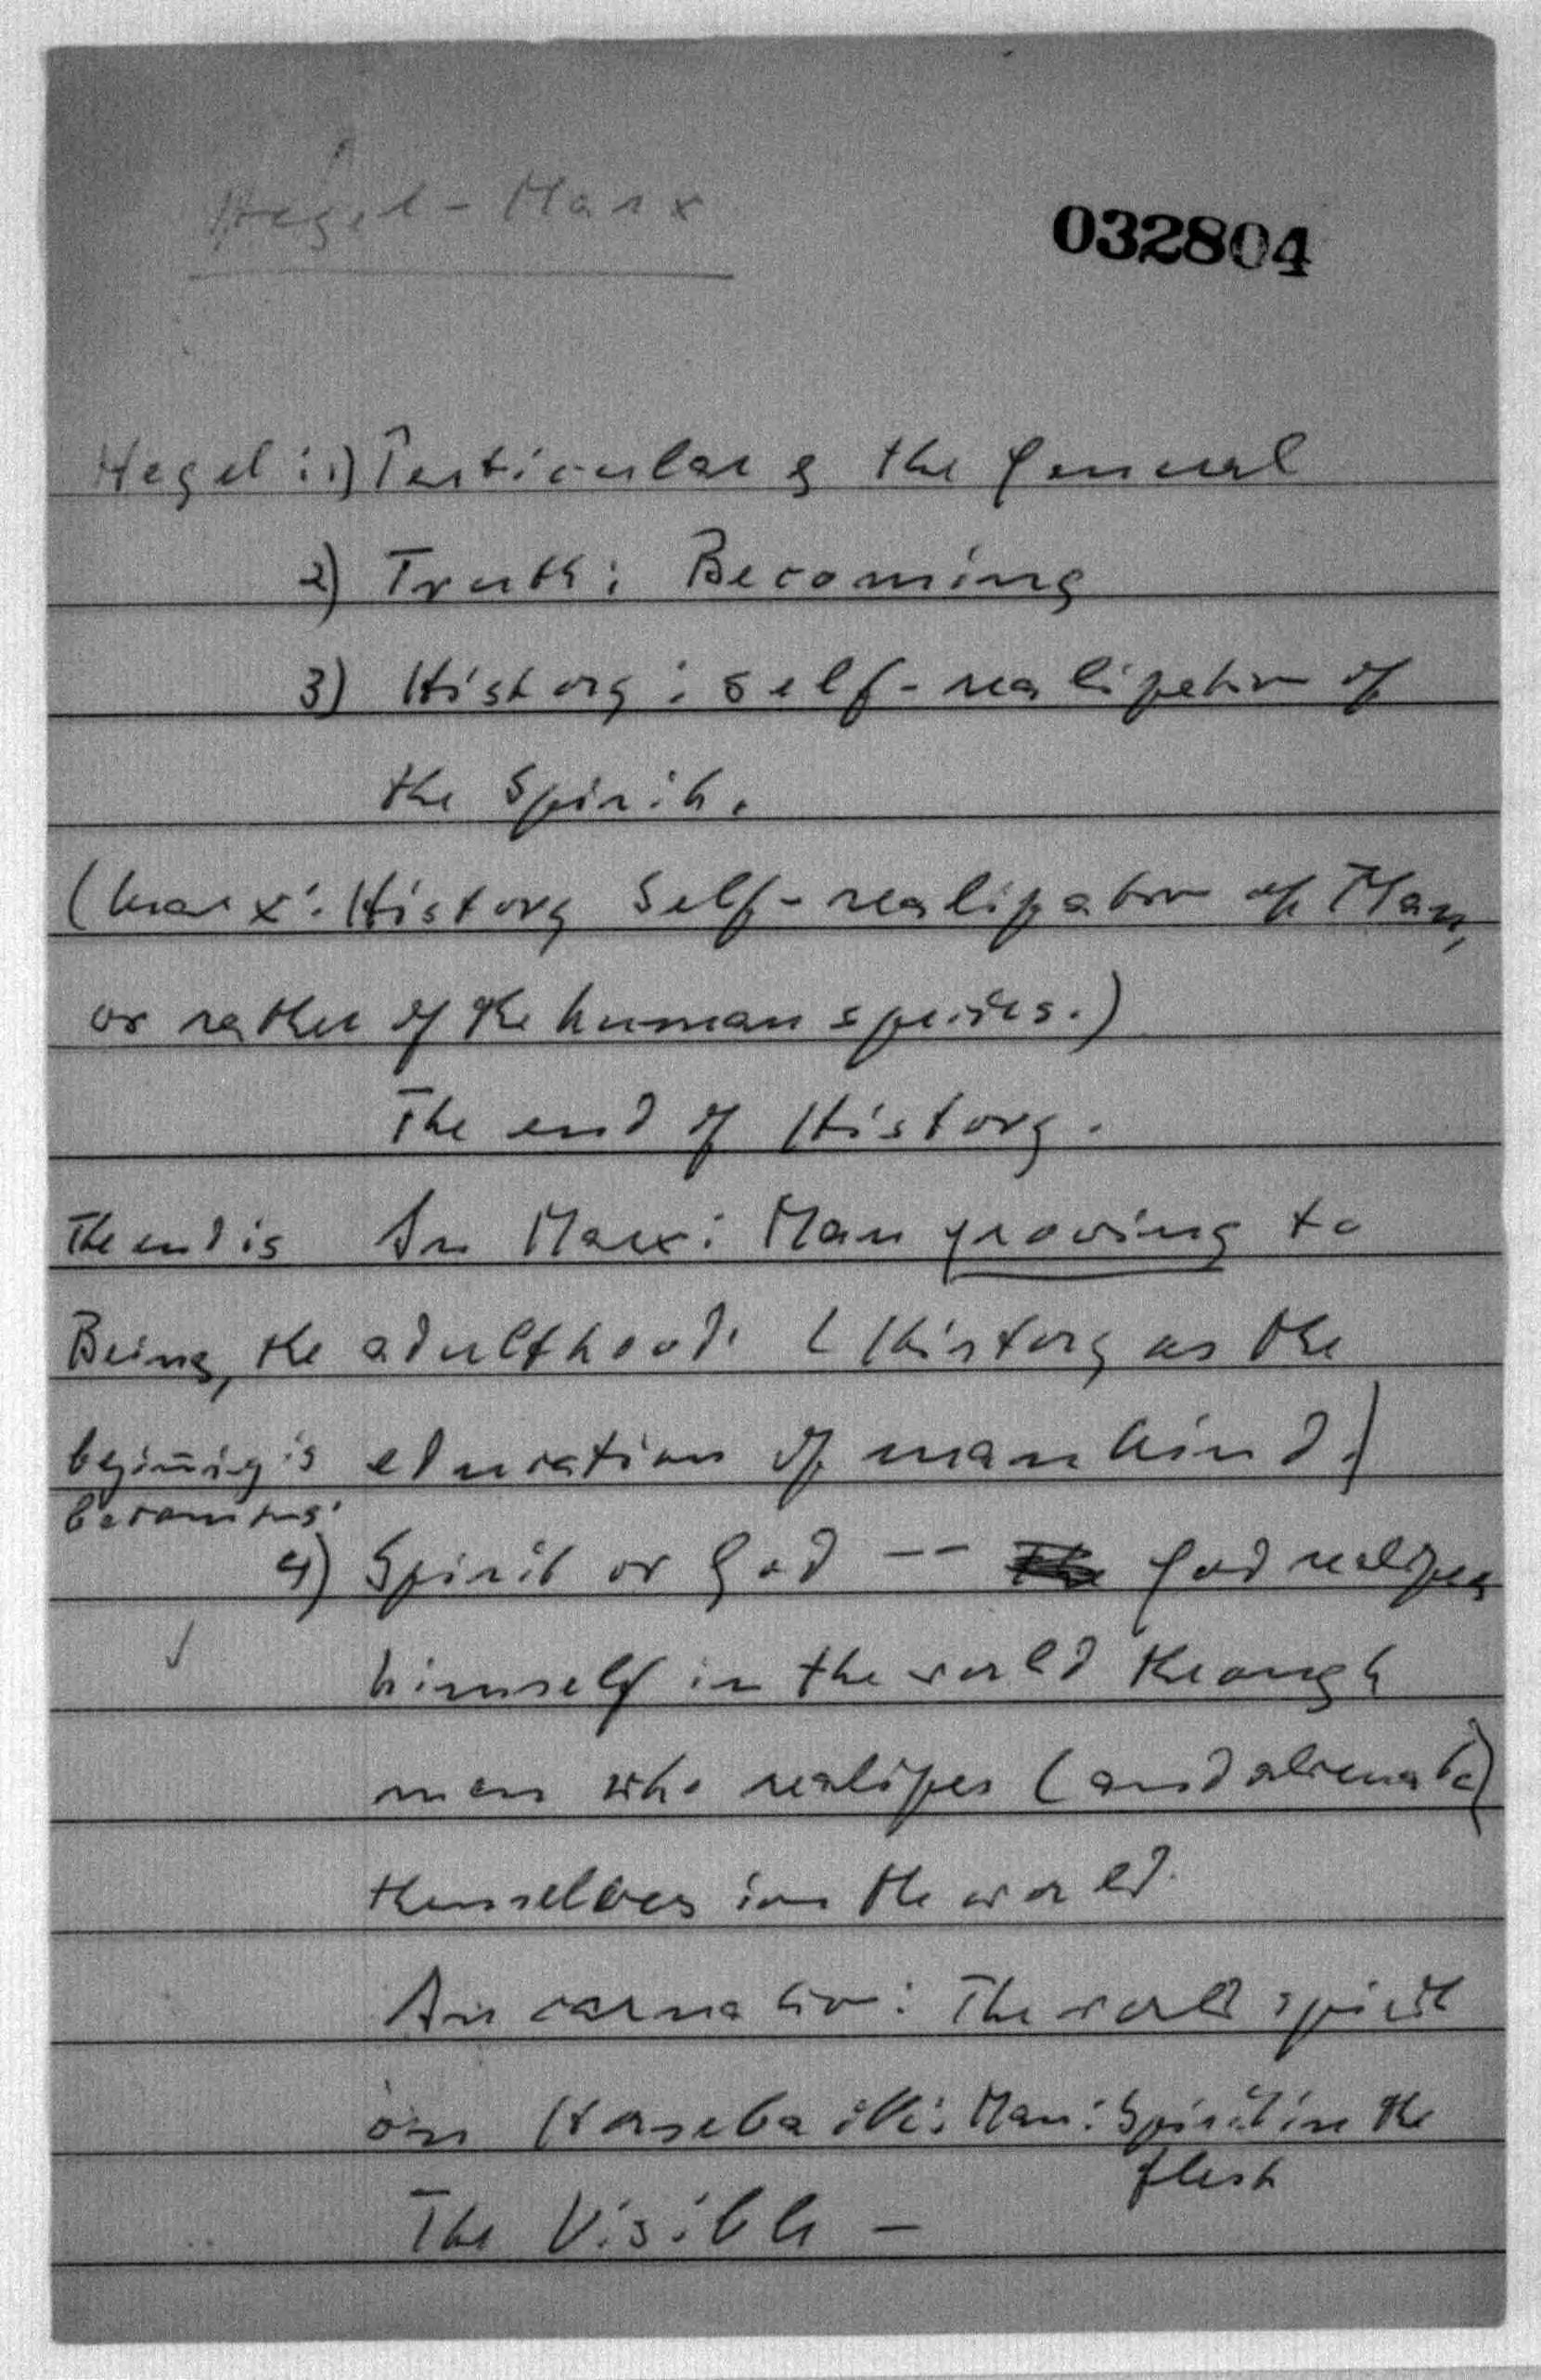 Hegel - Marx
032804
Hegel: 1) Particular & the General
2) Truth: Becoming
3) History: self-realization of
the Spirit.
(Marx: History Self-realization of Man,
or rather of the human species.)
The end of History.
The end is
Being, the
beginning is
becoming.
In Marx: Man growing to
adulthood. (History as the
education of mankind.)
4) Spirit or God -- God realizes
himself in the world through
men who realizes (and alienate)
themselves in the world.
Incarnation: The world spirit
on Horseback: Man: Spirit in the
flesh
The Visible -